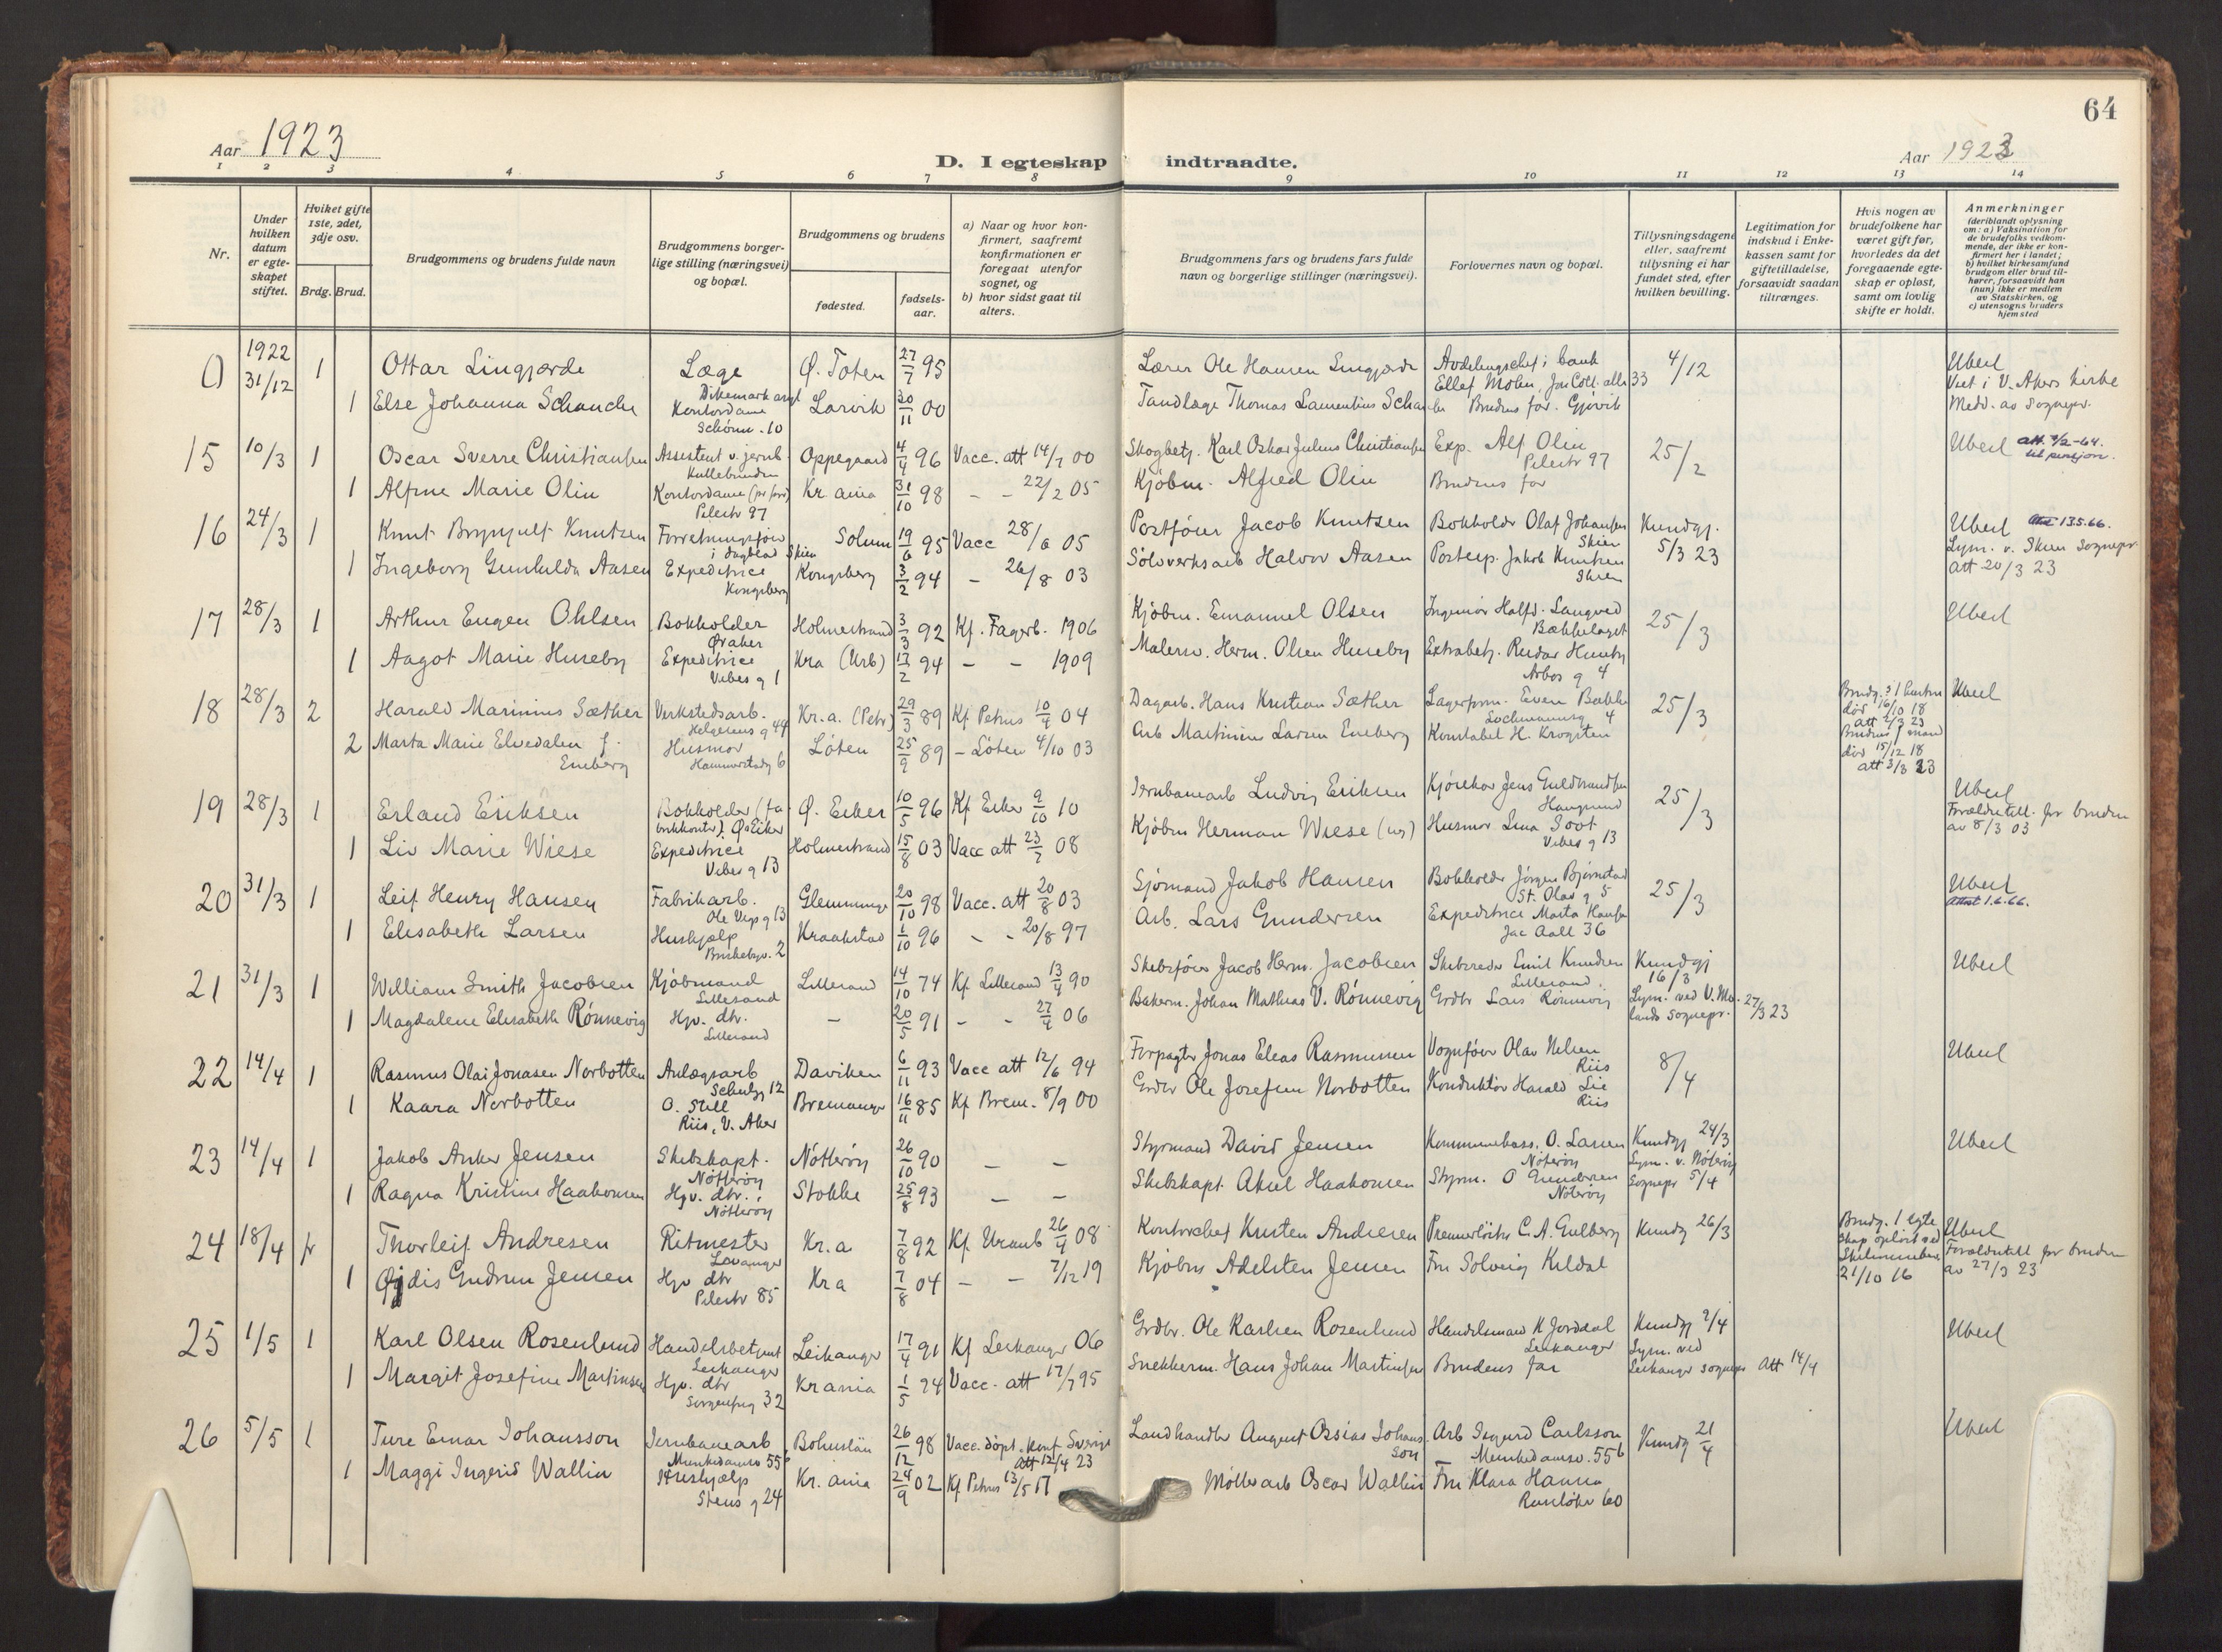 64
Aar 1923
D. I egteskap indtraadte.
Aar 1923
1 2 3 4 5 6 7 8 9 10 11 12 13 14
Nr.
Under hvilken datum er egteskapet stiftet.
Hviket gifte 1ste, 2det, 3dje osv.
Brdg. Brud.
Brudgommens og brudens fulde navn
Brudgommens borgerlige stilling (næringsvei) og bopæl.
Brudgommens og brudens
fødested.
fødselsaar.
a) Naar og hvor konfirmert, saafremt konfirmationen er foregaat utenfor sognet, og
b) hvor sidst gaat til alters.
Brudgommens fars og brudens fars fulde navn og borgerlige stillinger (næringsvei).
Forlovernes navn og bopæl.
Tillysningsdagene eller, saafremt tillysning ei har fundet sted, efter hvilken bevilling.
Legitimation for indskud i Enkekassen samt for giftetilladelse, forsaavidt saadan tiltrænges.
Hvis nogen av brudefolkene har været gift før, hvorledes da det foregaaende egteskap er opløst, samt om lovlig skifte er holdt.
Anmerkninger
(deriblandt oplysning om: a) Vaksination for de brudefolks vedkommende, der ikke er konfirmert her i landet; b) hvilket kirkesamfund brudgom eller brud tilhører, forsaavidt han (hun) ikke er medlem av Statskirken, og c) utensogns bruders hjemsted
0 1922 31/12 1 Ottar Lingjærde Læge Dikemark asyl Ø. Toten 27/7 95 Lærer Ole Hansen Lingjærde Avdelingschef i bank Ellef Mohn, Jac Coll. alle 33 4/12 Ubeel
Viet i V. Akers kirke
Medd. av sognepr.
1 Else Johanna Schancke Kontordame Schønn. 10 Larvik 20/11 00 Tandlæge Thomas Laurentius Schancke Brudens far. Gjøvik
15 10/3 1 Oscar Sverre Christiansen Assistent v. jernb. Kullebunden Oppegaard 4/4 96 Vacc. att 14/7 00 Skogbetj. Karl Oskar Julius Christiansen Exp. Alf Olin Pilestr 97 25/2 Ubeel att. 4/2-64. til pensjon.
1 Alfine Marie Olin Kontordame Pilestr 97 Kr ania 31/10 98 - - 22/2 05 Kjøbm. Alfred Olin Brudens far
16 24/3 1 Knut Brynjulf Knutsen Forretningsfører i dagblad Skien Solum 19/6 95 Vacc 28/6 05 Postfører Jacob Knutsen Bokholder Olaf Johansen Skien Kundgj. 5/3 23 Ubeel Att. 13.5.66.
Lysn. v. Skien sognepr.
att 20/3 23
1 Ingeborg Gunhilda Aasen Expeditrice Kongsberg Kongsberg 3/2 94 - 26/8 03 Sølvverksarb Halvor Aasen Postexp. Jakob Knutsen Skien
17 28/3 1 Arthur Eugen Ohlsen Bokholder Øraker Holmestrand 3/3 92 Kf. Fagerb. 1906 Kjøbm. Emanuel Olsen Ingeniør Halfd. Langved Bækkelaget 25/3 Ubeel
1 Aagot Marie Huseby Expeditrice Vibes g 1 Kra (Urb) 17/2 94 - - 1909 Malerm. Herm. Olsen Huseby Extrabetj. Reidar Huseby Arbos g 4
18 28/3 2 Harald Marinius Sæther Verkstedsarb. Helgesens g 44 Kr.a. (Petr) 29/3 89 Kf Petrus 10/4 04 Dagarb. Hans Kristian Sæther Lagerform. Even Bakke Lochmannsg 4 25/3 Brudg. s 1 hustru død 16/10 18 att 2/3 23 Brudens 1 mand død 15/12 18 att 3/3 23 Ubeel
2 Marta Marie Elvedalen f. Eneberg Husmor Hammerstadg 6 Løten 25/9 89 - Løten 4/10 03 Arb Martinius Larsen Eneberg Konstabel H. Krogsten
19 28/3 1 Erland Eriksen Bokholder (fabrikkontor) Ø. Eiker Ø. Eiker 10/5 96 Kf Eiker 9/10 10 Jernbanearb Ludvig Eriksen Kjørekar Jens Guldbrandsen Haugsund 25/3 Ubeel
Forældretill. for bruden
av 8/3 03
1 Liv Marie Wiese Expeditrice Vibes g 13 Holmestrand 15/8 03 Vacc att 23/7 08 Kjøbm Herman Wiese Husmor Lina Soot Vibes g 13
20 31/3 1 Leif Henry Hansen Fabrikarb. Ole Vigs g 13 Glemminge 20/10 98 Vacc. att 20/8 03 Sjømand Jakob Hansen Bokholder Jørgen Bjørnstad St. Olav g 5 25/3 Ubeel
Attest 1.6.66.
1 Elisabeth Larsen Hushjælp Briskebyv. 2 Kraakstad 1/10 96 - - 20/8 97 Arb. Lars Gundersen Expeditrice Marta Hansen Jac Aall 36
21 31/3 1 William Smith Jacobsen Kjøbmand Lillesand Lillesand 14/10 74 Kf. Lillesand 13/4 90 Skibsfører Jacob Herm. Jacobsen Skibsreder Emil Knudsen Lillesand Kundgj 16/3 Ubeel
1 Magdalene Elisabeth Rønnevig Hjv. dtr. Lillesand - 20/5 91 - - 27/4 06 Bakerm. Johan Mathias V. Rønnevig Grdbr Lars Rønnevig Lysn. ved V. Molands sognepr. 27/3 23
22 14/4 1 Rasmus Olai Jonasen Norbotten Anlægsarb Schultzg 12 Daviken 6/11 93 Vacc att 12/6 94 Forpagter Jonas Eleas Rasmussen Vognfører Olav Nilsen Riis 8/4 Ubeel
1 Kaara Norbotten O. Still Riis, V. Aker Bremanger 16/11 85 Kf Brem. 8/9 00 Grdbr Ole Josefsen Norbotten Konduktør Harald Lie Riis
23 14/4 1 Jakob Anker Jensen Skibskapt. Nøtterøy Nøtterøy 26/10 90 - - Styrmand David Jensen Kommunekass. O. Larsen Nøterøy Kundgj 24/3 Ubeel
1 Ragna Kristine Haakonsen Hjv. dtr. Nøtterøy Stokke 25/8 93 - - Skibskapt. Aksel Haakonsen Styrm. O Gundersen Nøterøy Lysn. v. Nøterøy Sognepr 5/4
24 18/4 fr Thorleif Andresen Ritmester Levanger Kr.a 7/8 92 Kf. Uranb 26/4 08 Kontorchef Kristen Andresen Premierløitn C. A. Gulberg Kundg 26/3 Brudg. 1 egteskap opløst ved Skilsmisse 21/10 16 Ubeel
Forældretill for bruden
av 27/3 23
1 Øjdis Gudrun Jensen Hjv dtr Pilestr 85 Kr a 7/8 04 - - 7/12 19 Kjøbm Adelsten Jensen Fru Solveig Kildal
25 1/5 1 Karl Olsen Rosenlund Handelsbetjent Leikanger Leikanger 17/4 91 Kf Leikanger 06 Grdbr. Ole Karlsen Rosenlund Handelsmand K Jorddal Leikanger Kundgj 2/4 Ubeel
1 Margit Josefine Martinsen Hjv. dtr Sorgenfrig 32 Kr ania 1/5 94 Vacc. att 17/7 95 Snekkerm. Hans Johan Martinsen Brudens far Lysn. ved Leikanger sognepr Att 14/4
26 5/5 1 Ture Einar Johansson Jernbanearb Munkedamsv 55 Bohuslän 26/12 98 Vacc. døpt. konf Sverige att 12/4 23 Landhandler August Ossias Johansson Arb Sigurd Carlsson Munkedamsv. 55b Kundg 21/4 Ubeel
1 Maggi Ingerid Wallin Hushjælp Stens g 24 Kr. ania 24/9 02 Kf Petrus 13/5 17 Møllerarb Oscar Wallin Fru Klara Hanna Rundløkv 60